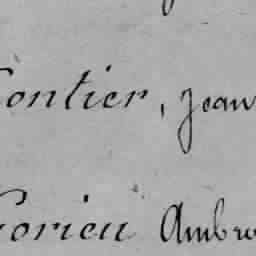 ontier, Jean
orieu Ambro